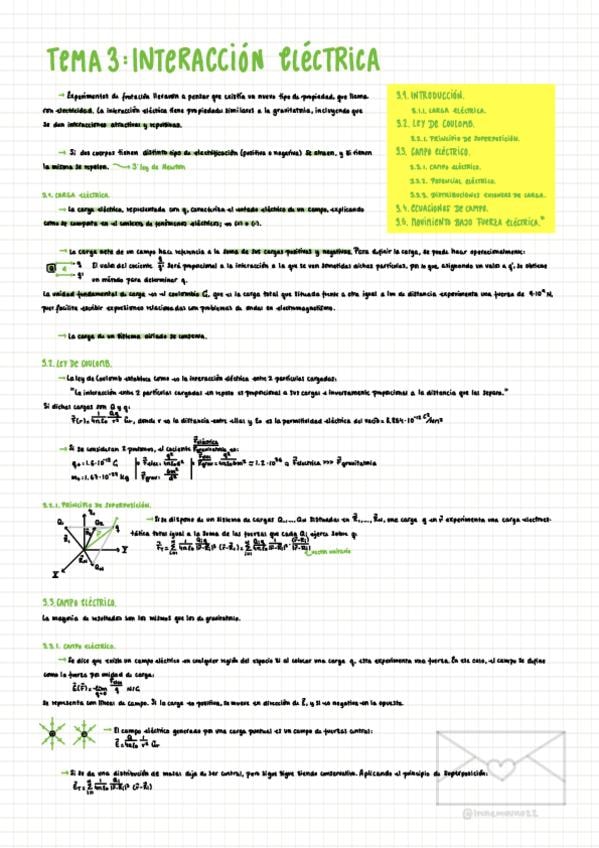 TEMA 3: INTERACCIÓN ELÉCTRICA
→ Experimentos de frotación llevaron a pensar que existía un nuevo tipo de propiedad, que llama
ron electricidad. La interacción eléctrica tiene propiedades similares a la gravitatoria, incluyendo que
se dan interacciones atractivas y repulsivas.
→ Si dos cuerpos tienen distinto tipo de electrificación (positiva o negativa) se atraen, y si tienen
la misma se repelen. → 3ª ley de Newton
3.1. INTRODUCCIÓN.
3.1.1. CARGA ELÉCTRICA.
3.2. LEY DE COULOMB.
3.2.1. PRINCIPIO DE SUPERPOSICIÓN.
3.3. CAMPO ELÉCTRICO.
3.3.1. CAMPO ELÉCTRICO.
3.3.2. POTENCIAL ELÉCTRICO.
3.3.3. DISTRIBUCIONES CONTINUAS DE CARGA.
3.4. ECUACIONES DE CAMPO.
3.5. MOVIMIENTO BAJO FUERZA ELÉCTRICA.*
3.1. CARGA ELÉCTRICA.
→ La carga eléctrica, representada con q, caracteriza el estado eléctrico de un campo, explicando
como se comporta en el contexto de fenómenos eléctricos; (+) o (-).
→ La carga neta de un campo hace referencia a la suma de sus cargas positivas y negativas. Para definir la carga, se puede hacer operacionalmente:
El valor del cociente q/q' será proporcional a la interacción a la que se ven sometidas dichas partículas, por lo que, asignando un valor a q', se obtiene
un método para determinar q.
La unidad fundamental de carga es el coulombio C, que es la carga total que situada frente a otra igual a 1m de distancia experimenta una fuerza de 9·10⁹ N,
pues facilita escribir expresiones relacionadas con problemas de ondas en electromagnetismo.
→ La carga de un sistema aislado se conserva.
3.2. LEY DE COULOMB.
→ La ley de Coulomb establece como es la interacción eléctrica entre 2 partículas cargadas:
"La interacción entre 2 partículas cargadas en reposo es proporcional a sus cargas e inversamente proporcional a la distancia que las separa."
Si dichas cargas son Q y q:
donde r es la distancia entre ellas y ε₀ es la permitividad eléctrica del vacío
→ Si se consideran 2 protones, el cociente
3.2.1. PRINCIPIO DE SUPERPOSICIÓN.
→ Si se dispone de un sistema de cargas Q₁,..., Q_N situadas en R₁,..., R_N, una carga q en r experimenta una carga electros-
tática total igual a la suma de las fuerzas que cada Qi ejerce sobre q.
vector unitario
3.3. CAMPO ELÉCTRICO.
La mayoría de resultados son los mismos que los de gravitatorio.
3.3.1. CAMPO ELÉCTRICO.
→ Se dice que existe un campo eléctrico en cualquier región del espacio si al colocar una carga q, esta experimenta una fuerza. En ese caso, el campo se define
como la fuerza por unidad de carga:
Se representa con líneas de campo. Si la carga es positiva, se mueve en dirección de E, y si es negativa en la opuesta.
→ El campo eléctrico generado por una carga puntual es un campo de fuerzas central:
→ Si se da una distribución de masas deja de ser central, pero sigue sigue siendo conservativo. Aplicando el principio de superposición: